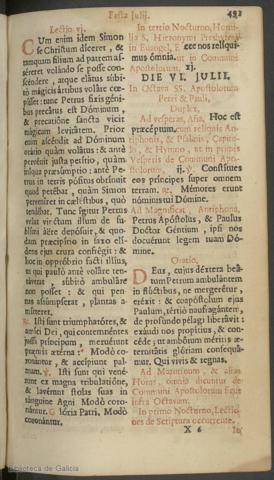 Festa Julij.
493
Lectio vj.
CUm enim idem Simon
se Christum diceret, &
tamquam filium ad patrem as-
séreret volándo se posse con-
scéndere, atque elátus súbi-
tò mágicis ártibus voláre cœ-
pisset: tunc Petrus fixis géni-
bus precátus est Dóminum,
& precatióne sancta vicit
mágicam levitátem. Prior
enim ascéndit ad Dóminum
orátio quàm volátus: & antè
pervénit justa petítio, quàm
iníqua præsumptio: antè Pe-
trus in terris pósitus obtínuit
quod petébat, quàm Simon
perveníret in cœléstibus, quò
tendébat. Tunc ígitur Petrus
velut vinctum illum de su-
blími áëre depósuit, & quo-
dam præcipítio in saxo elí-
dens ejus crura confrégit: &
hoc in oppróbrio facti illíus,
ut qui paulò antè voláre ten-
táverat, súbitò ambuláre
non posset: & qui pen-
nas assúmpserat, plantas a-
mítteret.
℟. Isti sunt triumphatóres, &
amíci Dei, qui contemnéntes
jussa príncipum, meruérunt
præmia ætérna: * Modò co-
ronántur, & accípiunt pal-
mam. ℣. Isti sunt qui vené-
runt ex magna tribulatióne,
& lavérunt stolas suas in
sánguine Agni Modò coro-
nántur. Glória Patri, Modò
coronántur.
In tertio Nocturno, Homi-
lia S. Hieronymi Presbyteri
in Euangel. Ecce nos relíqui-
mus ómnia. ut in Communi
Apostolorum. xj.
DIE VI. JULII.
In Octava SS. Apostolorum
Petri & Pauli,
Duplex.
Ad vesperas, Aña, Hoc est
præceptum. cum reliquis An-
tiphonis, & Psalmis, Capitu-
lo, & Hymno, ut in primis
Vesperis de Communi Apo-
stolorum, ij. ℣. Constítues
eos príncipes super omnem
terram. ℟. Mémores erunt
nóminis tui Dómine.
Ad Magnificat, Antiphona,
Petrus Apóstolus, & Paulus
Doctor Géntium, ipsi nos
docuérunt legem tuam Dó-
mine.
Oratio.
DEus, cujus déxtera beá-
tum Petrum ambulántem
in flúctibus, ne mergerétur,
eréxit: & coapóstolum ejus
Paulum, tértiò naufragántem,
de profúndo pélagi liberávit:
exáudi nos propítius, & con-
céde; ut ambórum méritis æ-
ternitátis glóriam consequá-
mur. Qui vivis & regnas.
Ad Matutinum, & alias
Horas, omnia dicuntur de
Communi Apostolorum sicut
infra Octavam.
In primo Nocturno, Lectio-
nes de Scriptura occurrente.
X 6
In
Biblioteca de Galicia